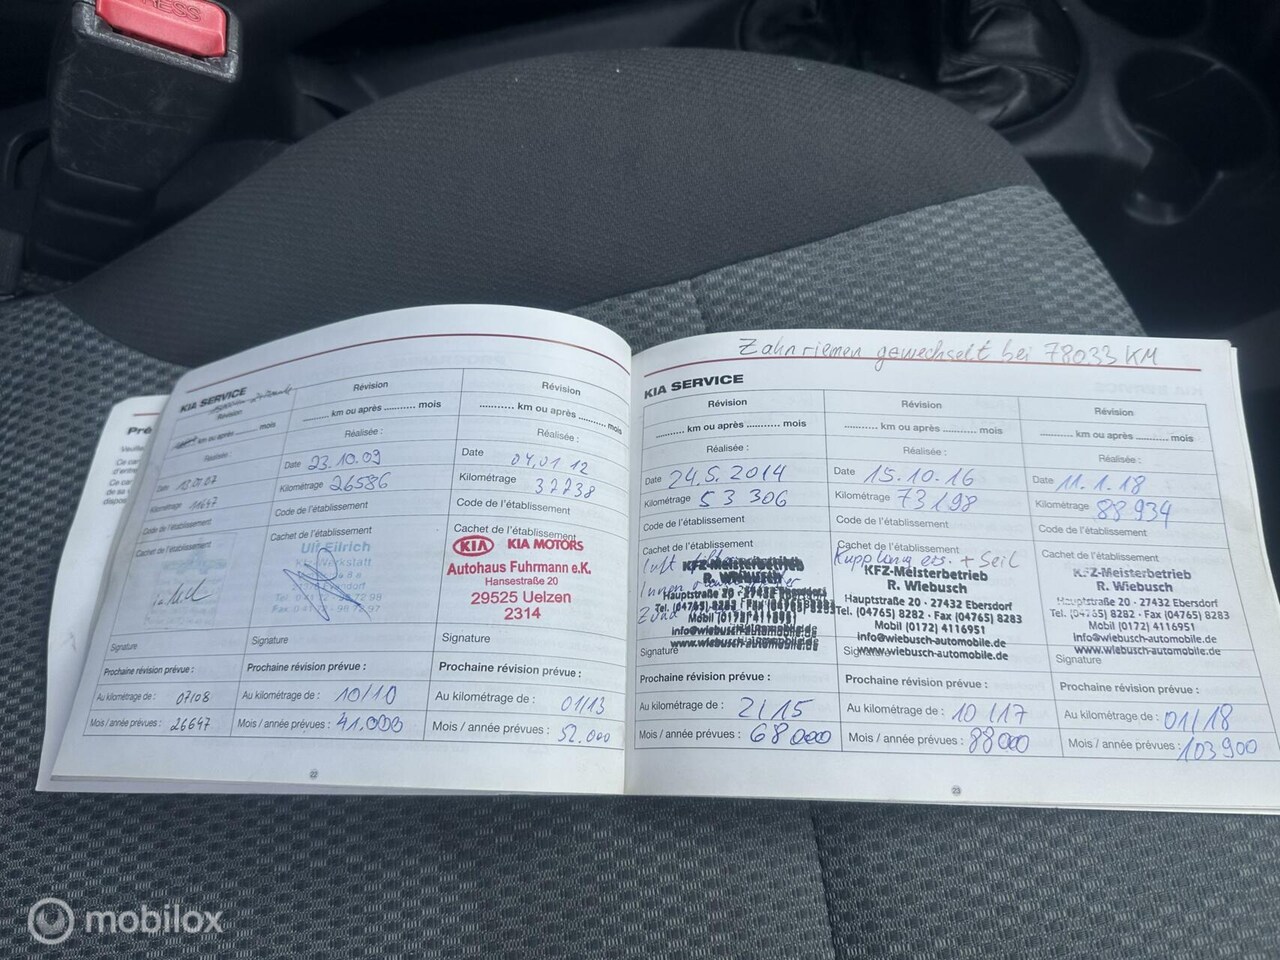 PRESS
Zahnriemen gewechselt bei 78033 KM
KIA SERVICE
Révision
km ou après .......... mois
Réalisée :
Date
Kilométrage 11647
Code de l'établissement
Cachet de l'établissement
Signature
Prochaine révision prévue :
Au kilométrage de : 07/08
Mois / année prévues : 26647
Révision
.......... km ou après .......... mois
Réalisée :
Date 23.10.09
Kilométrage 26586
Code de l'établissement
Cachet de l'établissement
Ulf Eilrich
Kfz-Werkstatt
Signature
Prochaine révision prévue :
Au kilométrage de : 10/10
Mois / année prévues : 41.000
Révision
.......... km ou après .......... mois
Réalisée :
Date 04.01 12
Kilométrage 37738
Code de l'établissement
Cachet de l'établissement
KIA KIA MOTORS
Autohaus Fuhrmann e.K.
Hansestraße 20
29525 Uelzen
2314
Signature
Prochaine révision prévue :
Au kilométrage de : 01/13
Mois / année prévues : 52.000
22
KIA SERVICE
Révision
.......... km ou après .......... mois
Réalisée :
Date 24.5.2014
Kilométrage 53306
Code de l'établissement
Cachet de l'établissement
KFZ-Meisterbetrieb
R. Wiebusch
Hauptstraße 20 · 27432 Ebersdorf
Tel. (04765) 8282 · Fax (04765) 8283
Mobil (0172) 4116951
info@wiebusch-automobile.de
www.wiebusch-automobile.de
Signature
Prochaine révision prévue :
Au kilométrage de : 2/15
Mois / année prévues : 68000
Révision
.......... km ou après .......... mois
Réalisée :
Date 15.10.16
Kilométrage 73198
Code de l'établissement
Cachet de l'établissement
Kupplung ers. + Seil
KFZ-Meisterbetrieb
R. Wiebusch
Hauptstraße 20 · 27432 Ebersdorf
Tel. (04765) 8282 · Fax (04765) 8283
Mobil (0172) 4116951
info@wiebusch-automobile.de
www.wiebusch-automobile.de
Prochaine révision prévue :
Au kilométrage de : 10/17
Mois / année prévues : 88000
Révision
.......... km ou après .......... mois
Réalisée :
Date 11.1.18
Kilométrage 88934
Code de l'établissement
Cachet de l'établissement
KFZ-Meisterbetrieb
R. Wiebusch
Hauptstraße 20 · 27432 Ebersdorf
Tel. (04765) 8282 · Fax (04765) 8283
Mobil (0172) 4116951
info@wiebusch-automobile.de
www.wiebusch-automobile.de
Signature
Prochaine révision prévue :
Au kilométrage de : 01/18
Mois / année prévues : 103900
23
mobilox